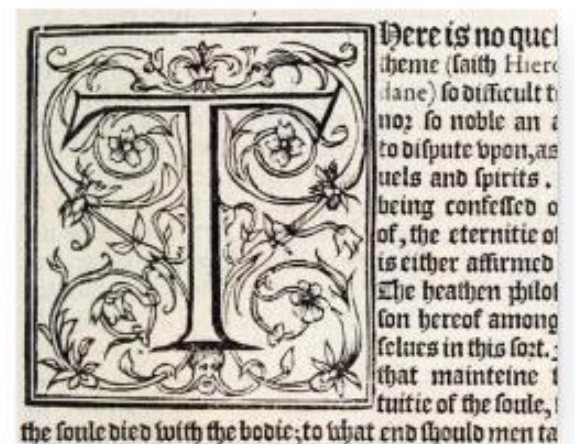 There is no quest
theme (saith Hiero
dane) so difficult t
nor so noble an a
to dispute vpon, as
uels and spirits.
being confessed o
of, the eternitie of
is either affirmed
The heathen philos
son hereof among
selues in this sort.
that mainteine t
tuitie of the soule,
the soule died with the bodie; to what end should men ta